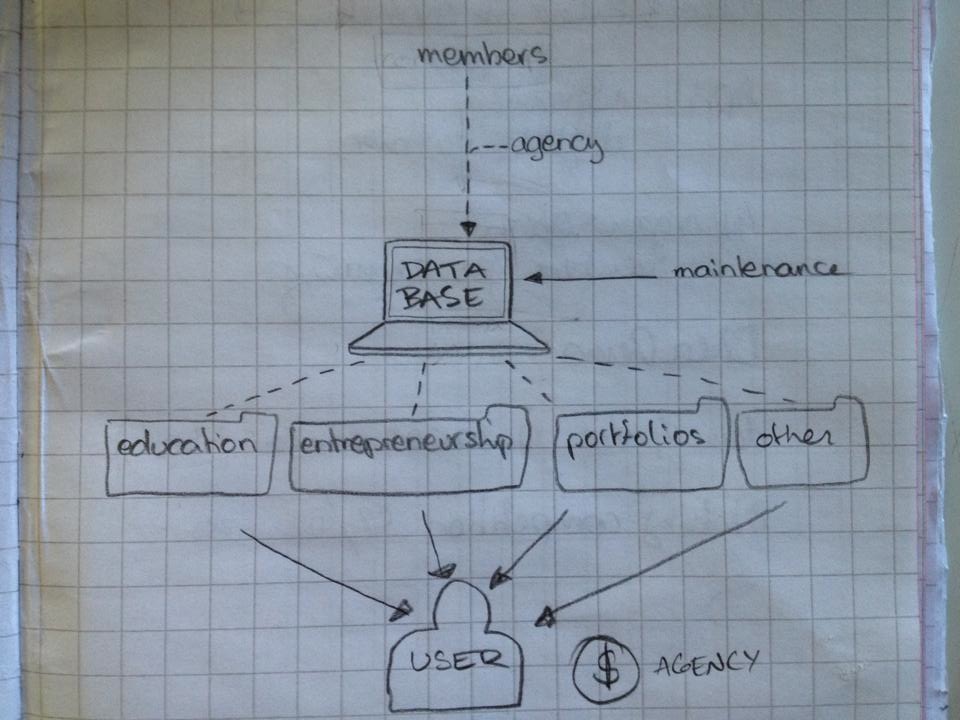 members
agency
DATA
BASE
maintenance
education
entrepreneurship
portfolios
other
USER
$ AGENCY